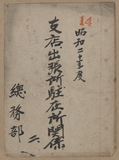 14
昭和二十五年度
支店出張所駐在所関係
総務部
二、